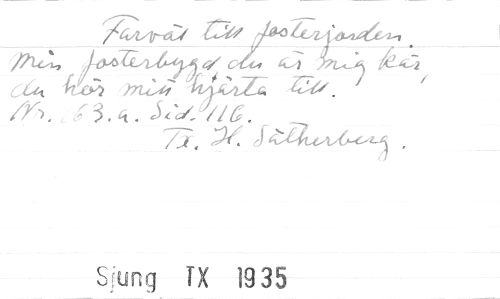 Farväl till fosterjorden.
Min fosterbygd, du är mig kär,
du hör mitt hjärta till.
Nr. 63.a. Sid. 116.
Tx. H. Sätherberg.
Sjung TX 1935